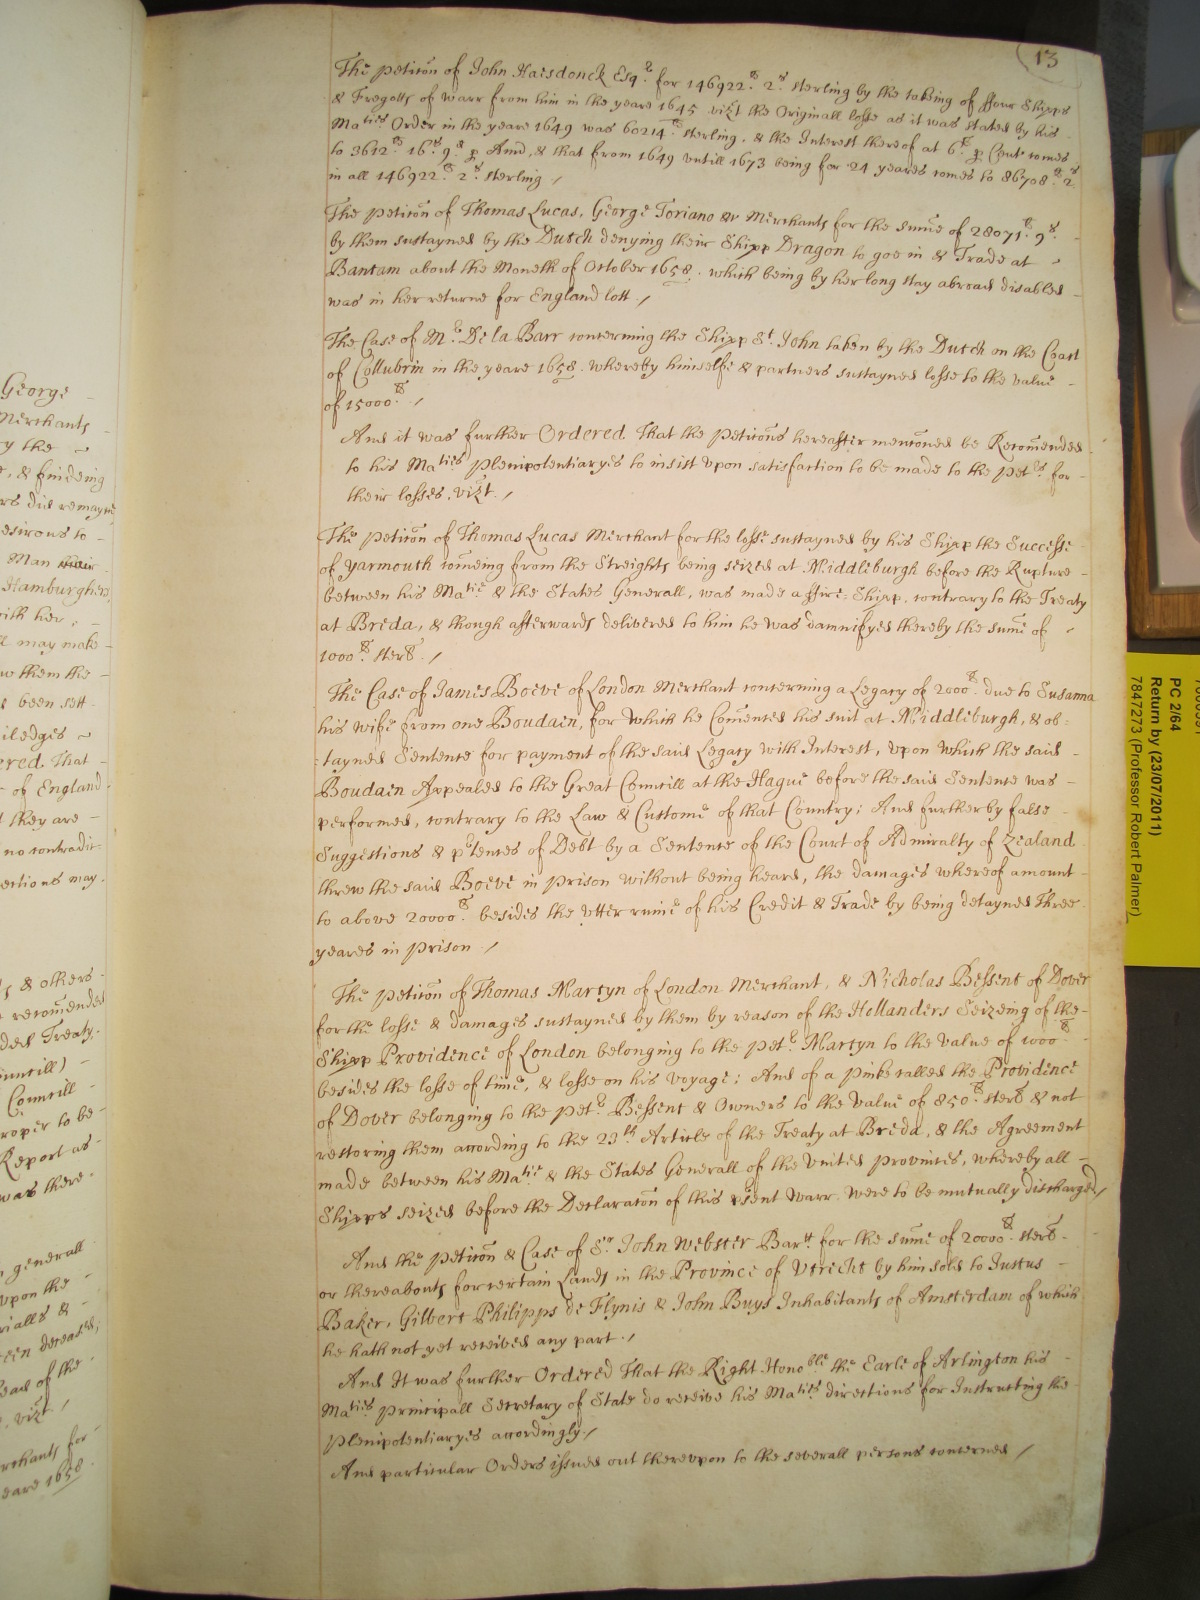 13
The petic̃on of John Haesdonck Esq.r for 146922.li 2.s sterling by the takeing of ffour Shipps
& Fregotts of Warr from him in the yeare 1645 vizt the Originall losse as it was stated by his
Ma.ties Order in the yeare 1649 was 60214.li sterling, & the Interest thereof at 6.li p Cent comes
to 3612.li 16.s 9.d p Annũ, & that from 1649 untill 1673 being for 24 yeares comes to 86708.li 2.s
in all 146922.li 2.s sterling /
The petic̃on of Thomas Lucas, George Toriano &c Merchants for the sum̃e of 28071.li 9.s
by them sustayned by the Dutch denying their Shipp Dragon to goe in & Trade at
Bantam about the Moneth of October 1658. which being by her long stay abroad disabled
was in her returne for England lost /
The Case of M.r De la Barr concerning the Shipp S.t John taken by the Dutch on the Coast
of Collubrin in the yeare 1658. whereby himselfe & partners sustayned losse to the value
of 15000.li /
And it was further Ordered That the Petic̃ons hereafter menc̃oned be Recom̃ended
to his Ma.ties Plenipotentiaryes to insist upon satisfaction to be made to the Pet.rs for
their losses, vizt. /
The Petic̃on of Thomas Lucas Merchant for the losse sustayned by his Shipp the Successe
of Yarmouth comeing from the Streights being seized at Middleburgh before the Rupture
between his Ma.tie & the States Generall, was made a ffire-Shipp, contrary to the Treaty
at Breda, & though afterwards delivered to him he was damnifyed thereby the sum̃e of
1000.li sterl. /
The Case of James Boeve of London Merchant concerning a Legacy of 2000.li due to Susanna
his wife from one Boudaen, for which he Com̃enced his suit at Middleburgh, & ob=
=tayned Sentence for payment of the said Legacy with Interest, upon which the said
Boudaen Appealed to the Great Councill at the Hague before the said Sentence was
performed, contrary to the Law & Custome of that Country; And further by false
Suggestions & p.rtences of Debt by a Sentence of the Court of Admiralty of Zealand
threw the said Boeve in prison without being heard, the damages whereof amount
to above 20000.li besides the utter ruine of his Credit & Trade by being detayned Three
yeares in prison /
The Petic̃on of Thomas Martyn of London Merchant, & Nicholas Bessent of Dover
for the losse & damages sustayned by them by reason of the Hollanders Seizeing of the
Shipp Providence of London belonging to the Pet.r Martyn to the value of 1000.li
besides the losse of time, & losse on his voyage; And of a pinke called the Providence
of Dover belonging to the Pet.r Bessent & Owners to the value of 850.li sterl & not
restoring them according to the 23.th Article of the Treaty at Breda, & the Agreement
made between his Ma.tie & the States Generall of the United provinces, whereby all
Shipps seized before the Declarac̃on of this p̃sent Warr were to be mutually discharged /
And the Petic̃on & Case of S.r John Webster Bar.tt for the sum̃e of 20000.li sterl
or thereabouts for certain Lands in the Province of Utrecht by him sold to Justus
Baker, Gilbert Philipps de Flynis & John Buys Inhabitants of Amsterdam of which
he hath not yet received any part /
And It was further Ordered That the Right Hono.ble the Earle of Arlington his
Ma.ties Principall Secretary of State do receive his Ma.ties directions for Instructing the
Plenipotentiaryes accordingly /
And particular Orders issued out thereupon to the severall persons concerned /
George
Merchants
y the
desirous to
Man
Hamburghers
with her;
may make
w them the
been sett
iledges
ered. That
of England
they are
no contradic=
ections may
& others
recom̃ended
Treaty.
Councill)
Councill
roper to be
Report as
was there
generall
upon the
deceased,
of the
vizt /
Merchants for
yeare 1658
PC 2/64
Return by (23/07/2011)
7847273 (Professor Robert Palmer)